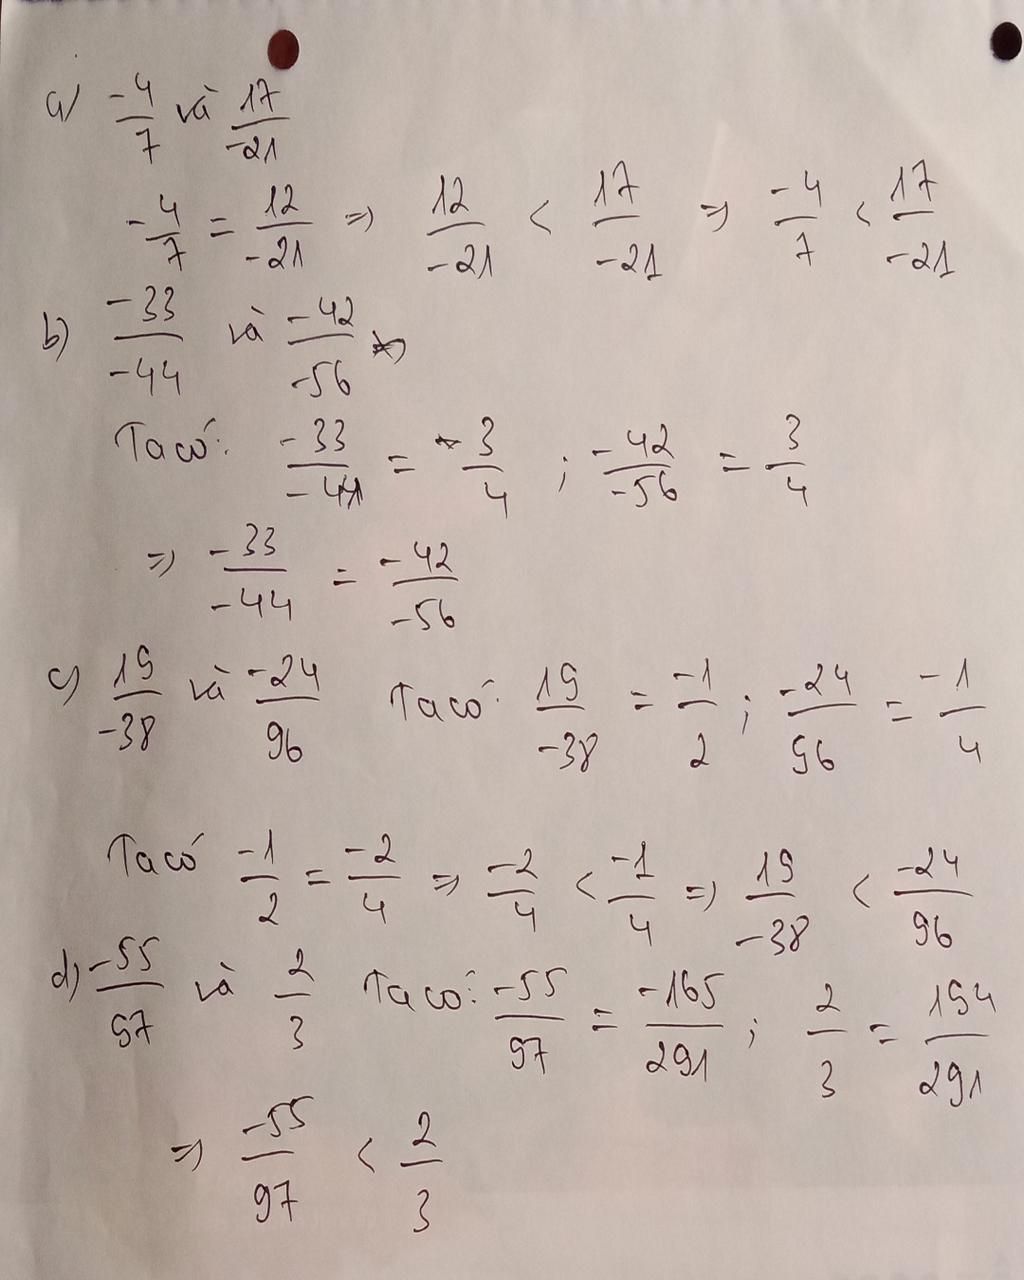 a) -4/7 và 17/-21
-4/7 = 12/-21 => 12/-21 < 17/-21 => -4/7 < 17/-21
b) -33/-44 và -42/-56
Ta có: -33/-44 = 3/4 ; -42/-56 = 3/4
=> -33/-44 = -42/-56
c) 19/-38 và -24/96 Ta có: 19/-38 = -1/2 ; -24/96 = -1/4
Ta có -1/2 = -2/4 => -2/4 < -1/4 => 19/-38 < -24/96
d) -55/97 và 2/3 Ta có: -55/97 = -165/291 ; 2/3 = 194/291
=> -55/97 < 2/3